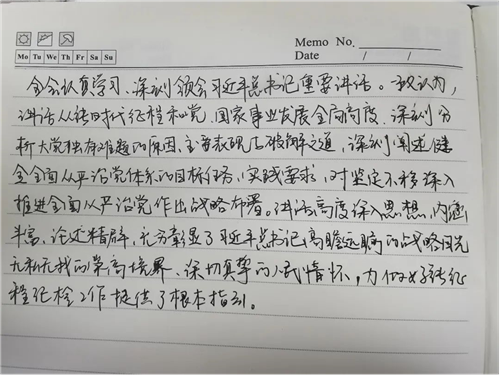 Memo No.
Mo Tu We Th Fr Sa Su
Date / /
全会认真学习、深刻领会习近平总书记重要讲话。一致认为,
讲话从新时代征程和党、国家事业发展全局高度、深刻分
析大党独有难题的原因、主要表现与破解之道,深刻阐述健
全全面从严治党体系的目标任务、实践要求,对坚定不移深入
推进全面从严治党作出战略部署。讲话高度深入思想、内涵
丰富、论述精辟,充分彰显了习近平总书记高瞻远瞩的战略目光
无私无我的崇高境界、深切真挚的人民情怀,为做好新征
程纪检工作提供了根本指引。